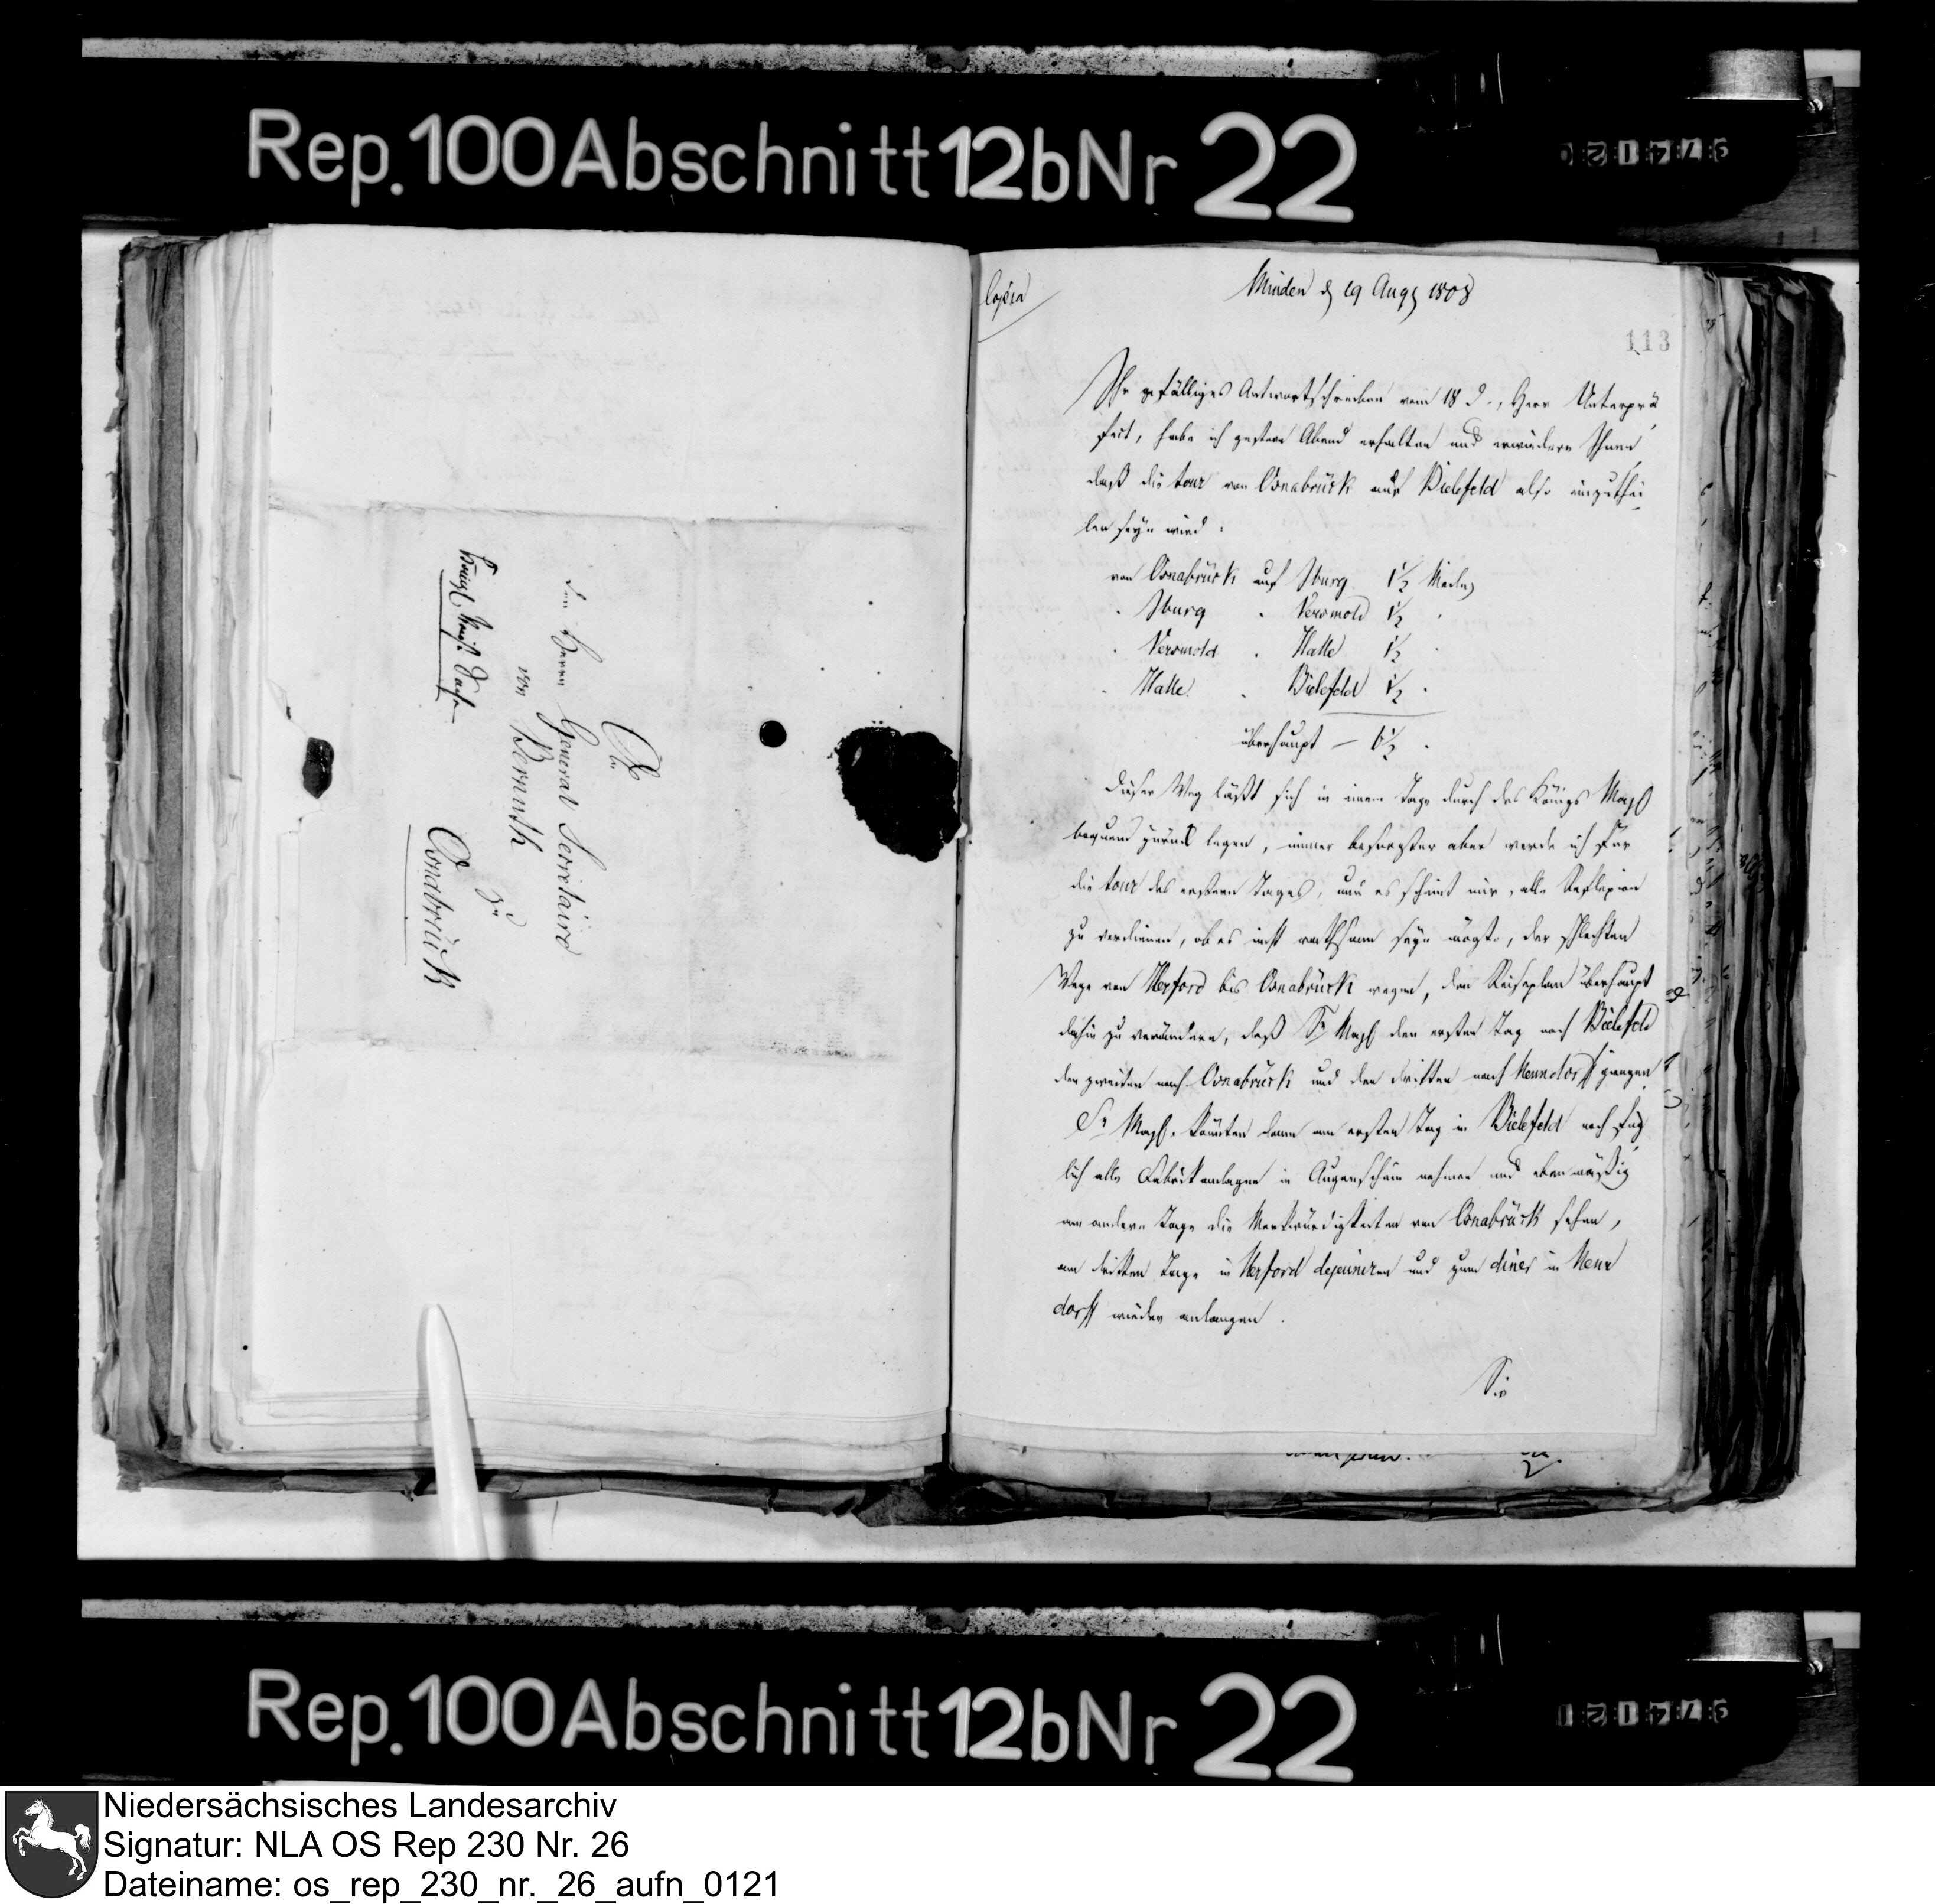 Rep. 100 Abschnitt 12b Nr 22
An
den Herrn General Secretaire
von Bernuth
zu
Osnabrück
Königl. Dienst Sache
Copia
Minden d 19 Aug 1808
113
Ihr gefälliges Antwortschreiben vom 18 d., Herr Unterprä
fect, habe ich gestern Abend erhalten und erwiedere Ihnen,
daß die tour von Osnabrück auf Bielefeld also einzuthei
len seyn wird:
von Osnabrück auf Iburg 1½ Meilen
" Iburg " Versmold 1½ "
" Versmold " Halle 1½ "
" Halle " Bielefeld 1½ "
überhaupt — 6½ "
Dieser Weg läßt sich in einem Tage durch des Königs Majst
bequem zurück legen, immer besorgter aber werde ich für
die tour des ersten Tages, und es scheint mir, alle Reflexion
zu verdienen, ob es nicht rathsam seyn mögte, der schlechten
Wege von Herford bis Osnabrück wegen, den Reiseplan überhaupt
dahin zu verändern, daß Sr Majst den ersten Tag nach Bielefeld
den zweiten nach Osnabrück und den dritten nach Nenndorff giengen
Sr Majst. könnten dann am ersten Tag in Bielefeld noch füg
lich alle Fabrikanlagen in Augenschein nehmen und ebenmäßig
am andern Tage die Merkwürdigkeiten von Osnabrück sehen,
am dritten Tage in Herford dejeuniren und zum diner in Nenn
dorff wieder anlangen.
Sie
Rep. 100 Abschnitt 12b Nr 22
Niedersächsisches Landesarchiv
Signatur: NLA OS Rep 230 Nr. 26
Dateiname: os_rep_230_nr._26_aufn_0121